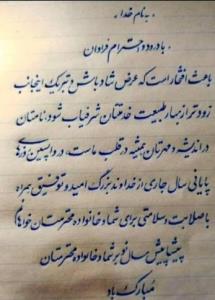 به نام خدا
با درود و احترام فراوان
باعث افتخار است که عرض شادباش و تبریک اینجانب
زودتر از بهار طبیعت خدمتتان شرفیاب شود، نامتان
در اندیشه و مهرتان همیشه در قلب ماست، در واپسین روزهای
پایانی سال جاری از خداوند بزرگ امید و توفیق همراه
با صلابت و سلامتی برای شما و خانواده محترمتان خواهانم
پیشاپیش سال نو بر شما و خانواده محترمتان
مبارک باد